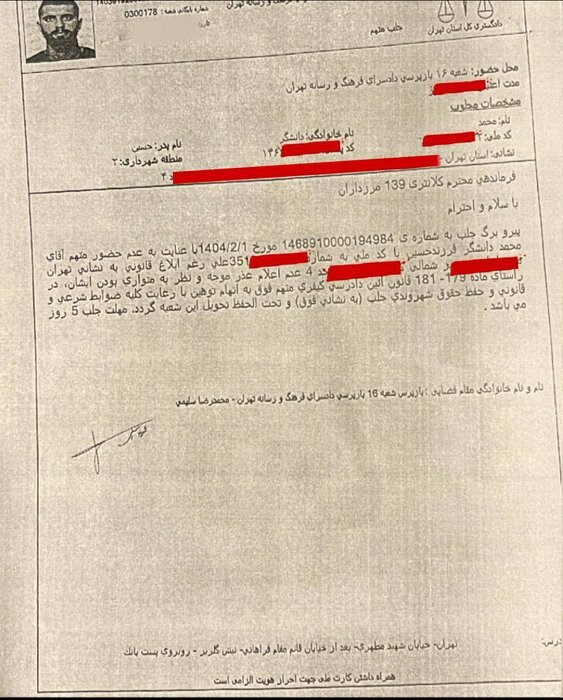 شماره بایگانی شعبه: 0300178
دادگستری کل استان تهران
جلب متهم
محل حضور: شعبه ۱۶ بازپرسی دادسرای فرهنگ و رسانه تهران
مدت
مشخصات مطلوب
نام: محمد
نام خانوادگی: دانشگر
نام پدر: حسین
کد ملی:
منطقه شهرداری: ۲
نشانی: استان تهران -
فرماندهی محترم کلانتری 139 مرزداران
با سلام و احترام
پیرو برگ جلب به شماره ی 1468910000194984 مورخ 1404/2/1با عنایت به عدم حضور متهم آقای
محمد دانشگر فرزندحسین با کد ملی به شماره 351 علی رغم ابلاغ قانونی به نشانی تهران
شمالی 4 عدم اعلام عذر موجه و نظر به متواری بودن ایشان، در
راستای ماده 179- 181 قانون آئین دادرسی کیفری متهم فوق به اتهام توهین با رعایت کلیه ضوابط شرعی و
قانونی و حفظ حقوق شهروندی جلب (به نشانی فوق) و تحت الحفظ تحویل این شعبه گردد. مهلت جلب 5 روز
می باشد .
نام و نام خانوادگی مقام قضایی : بازپرس شعبه 16 بازپرسی دادسرای فرهنگ و رسانه تهران - محمدرضا سلیمی
تهران- خیابان شهید مطهری- بعد از خیابان قائم مقام فراهانی- نبش گلریز - روبروی پست بانک
همراه داشتن کارت ملی جهت احراز هویت الزامی است